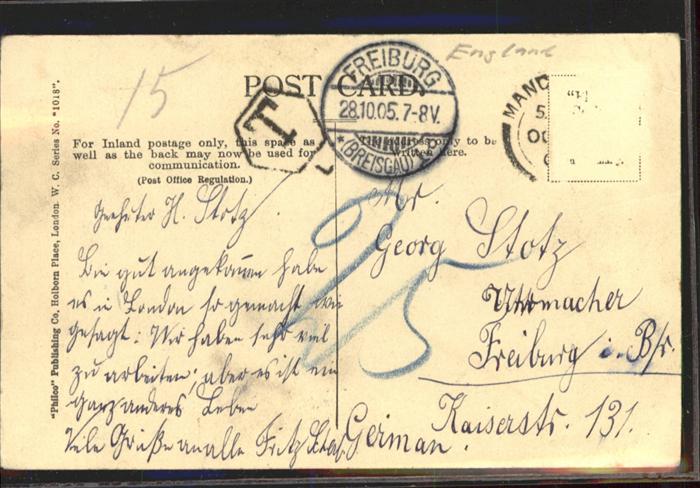 England
15
POST CARD.
FREIBURG
28.10.05.7-8V.
* (BREISGAU) *
T
MANC
For Inland postage only, this space as
well as the back may now be used for
communication.
(Post Office Regulation.)
The address only to be
written here.
"Philco" Publishing Co., Holborn Place, London W. C. Series No. "1018".
Geehrter H. Stotz
Bin gut angekommen habe
es in London so gemacht wie
gesagt: Wir haben sehr viel
zu arbeiten; aber es ist ein
ganz anderes Leben
Viele Grüße an alle Fritz
25
Mr.
Georg Stotz
Uhrmacher
Freiburg i. B/r.
Kaiserstr. 131.
German.